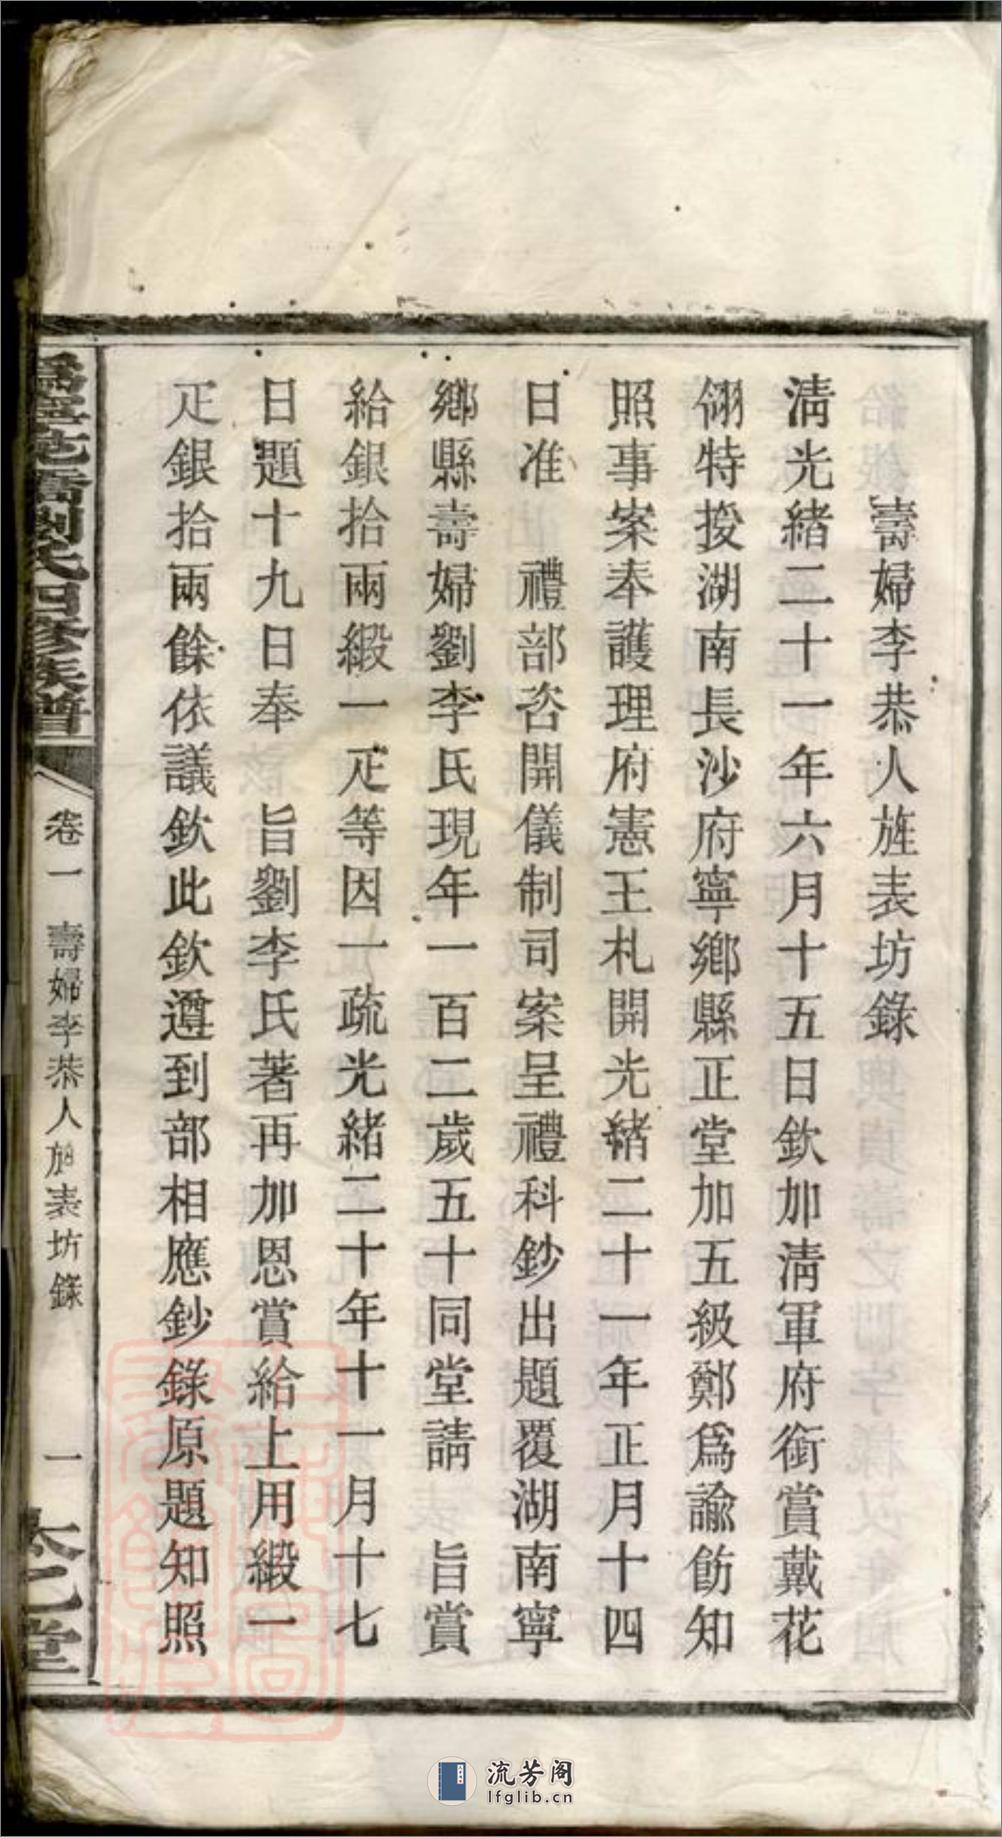 壽婦李恭人旌表坊錄
清光緒二十一年六月十五日欽加清軍府銜賞戴花
翎特授湖南長沙府寧鄉縣正堂加五級鄭爲諭飭知
照事案奉護理府憲王札開光緒二十一年正月十四
日准　禮部咨開儀制司案呈禮科鈔出題覆湖南寧
鄉縣壽婦劉李氏現年一百二歲五十同堂請　旨賞
給銀拾兩緞一疋等因一疏光緒二十年十一月十七
日題十九日奉　旨劉李氏著再加恩賞給上用緞一
疋銀拾兩餘依議欽此欽遵到部相應鈔錄原題知照
橋劉氏四修族譜
卷一　壽婦李恭人旌表坊錄
一
太乙堂
流芳阁
lfglib.cn